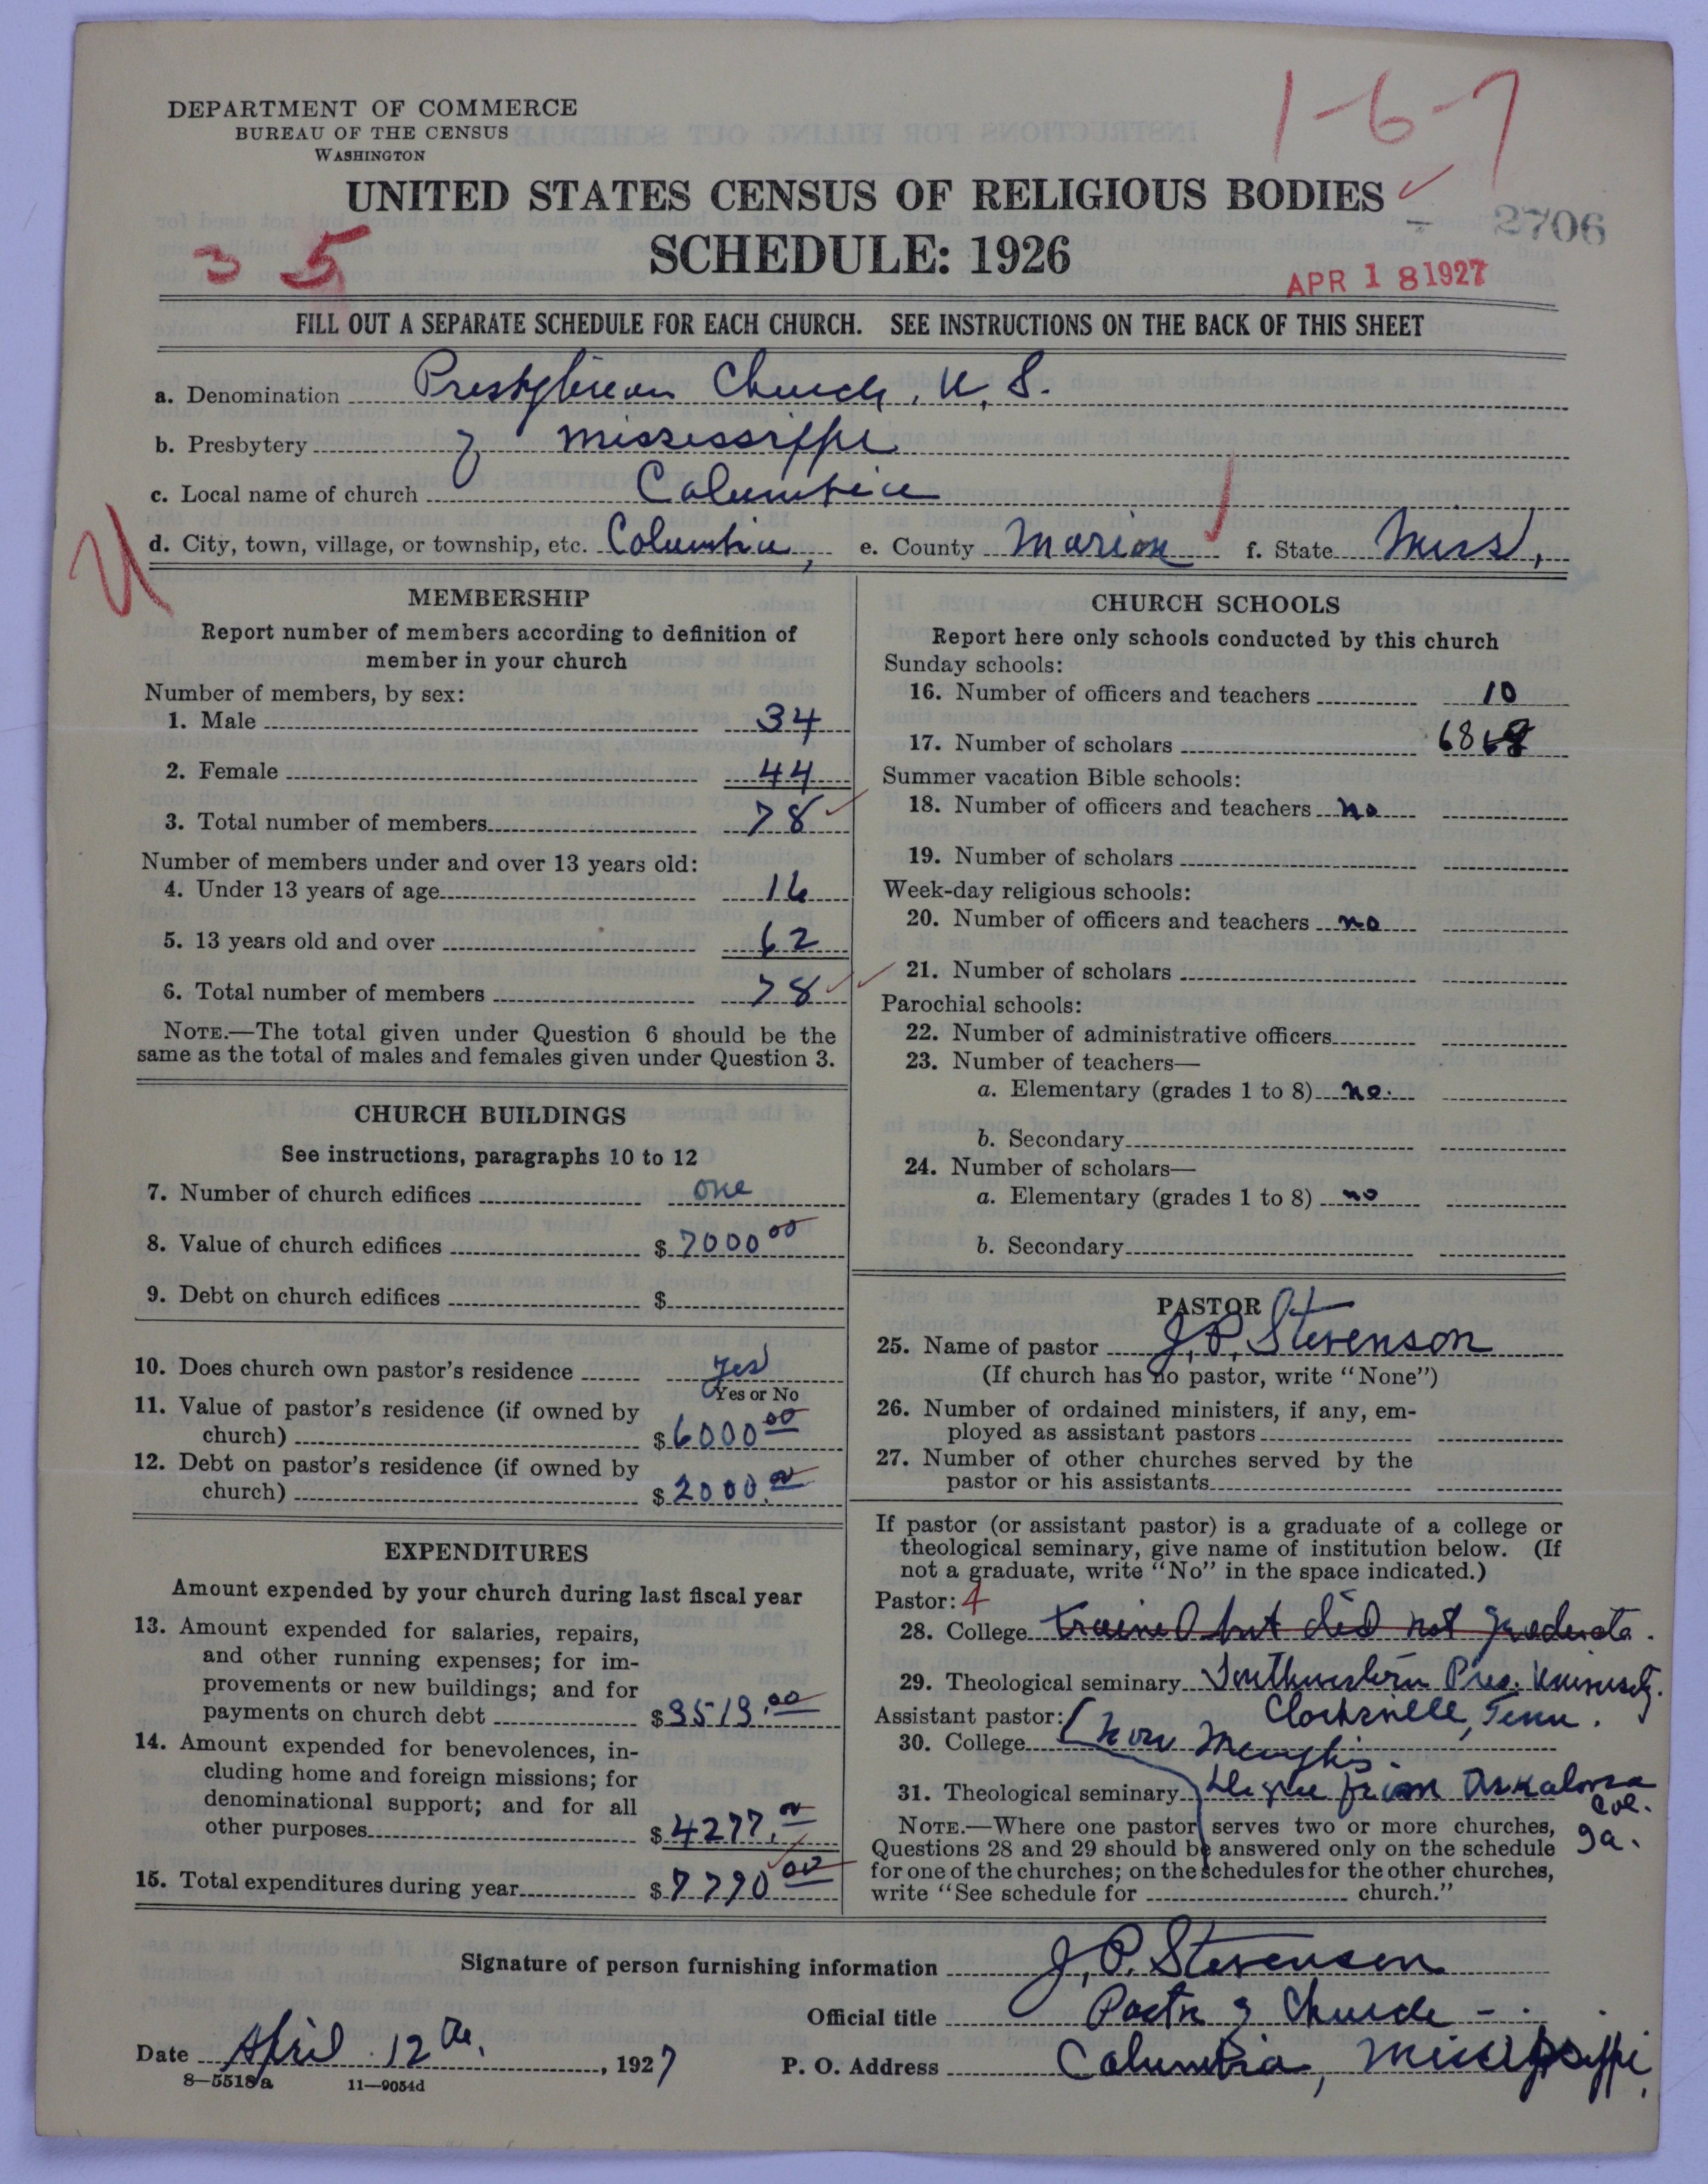 DEPARTMENT OF COMMERCE
BUREAU OF THE CENSUS
WASHINGTON
1-6-7
UNITED STATES CENSUS OF RELIGIOUS BODIES
SCHEDULE: 1926
2706
3 5
APR 18 1927
FILL OUT A SEPARATE SCHEDULE FOR EACH CHURCH. SEE INSTRUCTIONS ON THE BACK OF THIS SHEET
a. Denomination Presbyterian Church, U. S.
b. Presbytery of Mississippi
c. Local name of church Columbia
d. City, town, village, or township, etc. Columbia, e. County Marion f. State Miss,
MEMBERSHIP
Report number of members according to definition of
member in your church
Number of members, by sex:
1. Male 34
2. Female 44
3. Total number of members 78
Number of members under and over 13 years old:
4. Under 13 years of age 16
5. 13 years old and over 62
6. Total number of members 78
NOTE.—The total given under Question 6 should be the
same as the total of males and females given under Question 3.
CHURCH BUILDINGS
See instructions, paragraphs 10 to 12
7. Number of church edifices one
8. Value of church edifices $ 7000 00
9. Debt on church edifices $
10. Does church own pastor's residence yes
Yes or No
11. Value of pastor's residence (if owned by
church) $ 6000 00
12. Debt on pastor's residence (if owned by
church) $ 2000.00
EXPENDITURES
Amount expended by your church during last fiscal year
13. Amount expended for salaries, repairs,
and other running expenses; for im-
provements or new buildings; and for
payments on church debt $ 3513.00
14. Amount expended for benevolences, in-
cluding home and foreign missions; for
denominational support; and for all
other purposes $ 4277.00
15. Total expenditures during year $ 7790 00
CHURCH SCHOOLS
Report here only schools conducted by this church
Sunday schools:
16. Number of officers and teachers 10
17. Number of scholars 68
Summer vacation Bible schools:
18. Number of officers and teachers no
19. Number of scholars
Week-day religious schools:
20. Number of officers and teachers no
21. Number of scholars
Parochial schools:
22. Number of administrative officers
23. Number of teachers—
a. Elementary (grades 1 to 8) no.
b. Secondary
24. Number of scholars—
a. Elementary (grades 1 to 8) no
b. Secondary
PASTOR
25. Name of pastor J. P. Stevenson
(If church has no pastor, write "None")
26. Number of ordained ministers, if any, em-
ployed as assistant pastors
27. Number of other churches served by the
pastor or his assistants
If pastor (or assistant pastor) is a graduate of a college or
theological seminary, give name of institution below. (If
not a graduate, write "No" in the space indicated.)
Pastor: 4
28. College trained but did not graduate.
29. Theological seminary Southwestern Pres. University.
Assistant pastor: Clarksville, Tenn.
30. College (now Memphis
31. Theological seminary Degree from Oskaloosa
Col.
Ga.
NOTE.—Where one pastor serves two or more churches,
Questions 28 and 29 should be answered only on the schedule
for one of the churches; on the schedules for the other churches,
write "See schedule for church."
Signature of person furnishing information J. P. Stevenson
Official title Pastor of Church -
Date April 12th, 1927 P. O. Address Columbia, Mississippi,
8-5518a 11-9054d